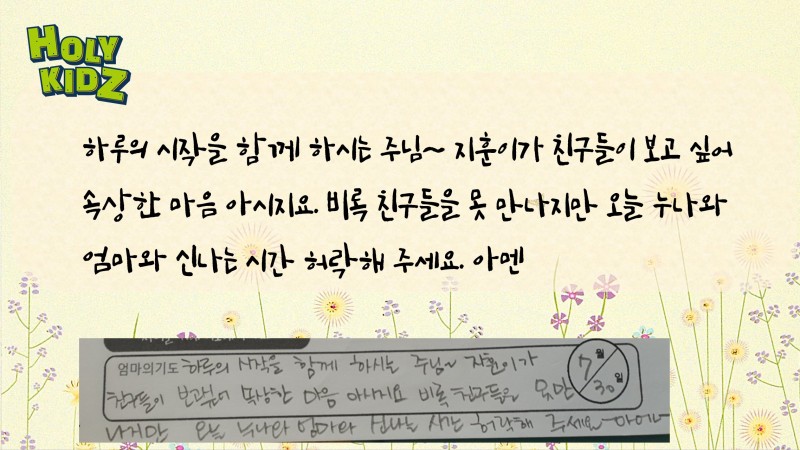 HOLY
KIDZ
하루의 시작을 함께 하시는 주님~ 지훈이가 친구들이 보고 싶어
속상한 마음 아시지요. 비록 친구들을 못 만나지만 오늘 누나와
엄마와 신나는 시간 허락해 주세요. 아멘
엄마의기도 하루의 시작을 함께 하시는 주님~ 지훈이가
7월
친구들이 보고싶어 속상한 마음 아시지요 비록 친구들을 못만
30일
나지만 오늘 누나와 엄마와 신나는 시간 허락해 주세요~아멘